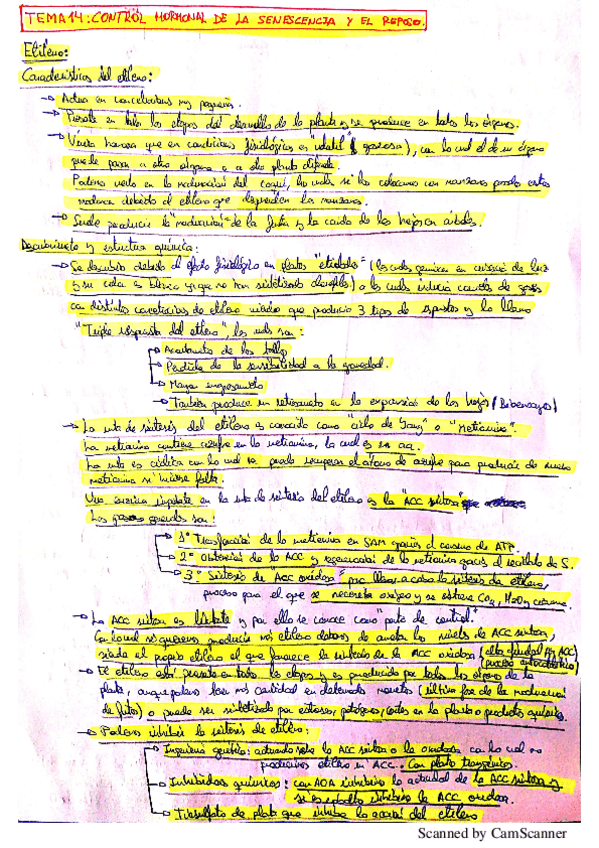 TEMA 14: CONTROL HORMONAL DE LA SENESCENCIA Y EL REPOSO.
Etileno:
Características del etileno:
→ Actua en concentraciones muy pequeñas.
→ Presente en todas las etapas del desarrollo de la planta y se produce en todos los órganos.
→ Única hormona que en condiciones fisiológicas es "volatil" (gaseosa), con lo cual el de un órgano
puede pasar a otro órgano o a otra planta diferente.
Podemos verlo en la maduración del caqui, los cuales si los colocamos con manzanas
maduran debido al etileno que desprenden las manzanas.
→ Suele producir la "maduración" de la fruta y la caida de las hojas en árboles.
Descubrimiento y estructura química:
→ Se descubrió debido al efecto fisiológico en plantas "etioladas" (las cuales germinan en ausencia de luz
y su color es blanco ya que no han sintetizado clorofila) a las cuales
con distintas concentraciones de etileno que producia 3 tipos de respuestas y lo llamo
"Triple respuesta del etileno", las cuales son:
→ Acortamiento de los tallos
→ Perdida de la sensibilidad a la gravedad.
→ Mayor engrosamiento
→ También produce un retrasamiento en la expansión de las hojas
→ La ruta de síntesis del etileno es conocida como "ciclo de Yang" o "Metionina".
La metionina contiene azufre en la metionina, la cual es un aa.
La ruta es cíclica con lo cual se puede recuperar el átomo de azufre para producir de nuevo
metionina si hiciese falta.
Una enzima importante en la ruta de síntesis del etileno es la "ACC sintasa"
Los pasos generales son:
→ 1º Transformación de la metionina en SAM gracias al consumo de ATP.
→ 2º Obtención de la ACC y regeneración de la metionina gracias al reciclado de S.
→ 3º Síntesis de "ACC oxidasa" para llevar a cabo la síntesis de etileno,
proceso para el que se necesita oxígeno y se obtiene CO2, H2O y cianuro.
→ La ACC sintasa es limitante y por ello se conoce como "punto de control".
Con lo cual si queremos producir más etileno debemos de aumentar los niveles de ACC sintasa,
siendo el propio etileno el que favorece la síntesis de la ACC oxidasa
(proceso autocatalítico)
→ El etileno está presente en todas las etapas y es producido por todos los órganos de la
planta, aunque podemos tener más cantidad en determinado momento (última fase de la maduración
de frutos) o puede ser sintetizado por estreses, patógenos, cortes en la planta o productos químicos.
→ Podemos inhibir la síntesis de etileno:
→ Ingeniería genética: actuando sobre la ACC sintasa o la oxidasa con lo cual no
produciremos etileno ni ACC. Con plantas transgénicas.
→ Inhibidores químicos: con AOA inhibimos la actividad de la ACC sintasa y
inhibimos la ACC oxidasa.
→ Tiosulfato de plata que inhibe la acción del etileno
Scanned by CamScanner